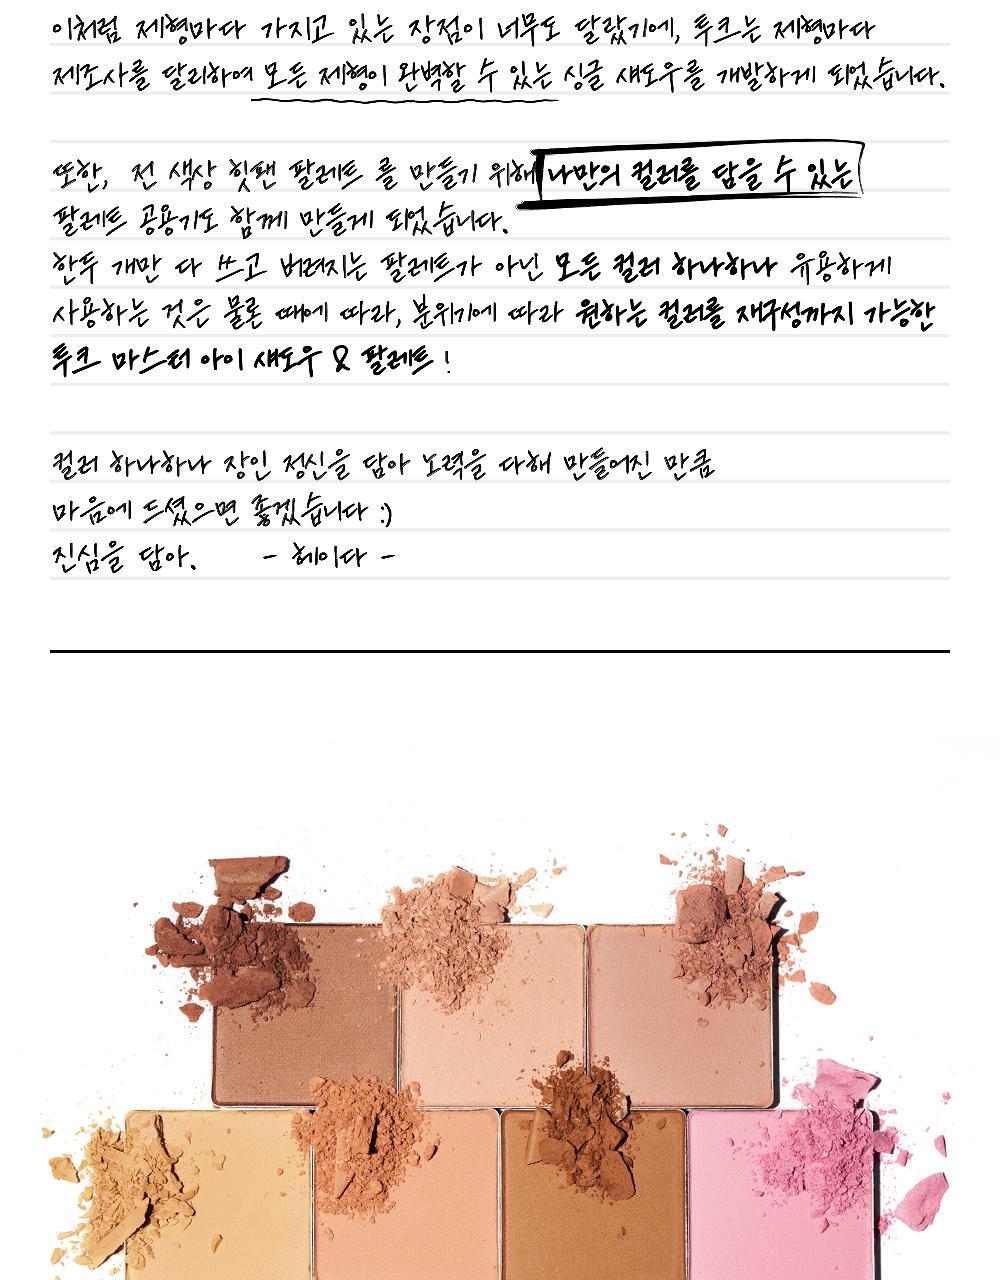 이처럼 제형마다 가지고 있는 장점이 너무도 달랐기에, 투크는 제형마다
제조사를 달리하여 모든 제형이 완벽할 수 있는 싱글 섀도우를 개발하게 되었습니다.
또한, 전 색상 힛팬 팔레트 를 만들기 위해 나만의 컬러를 담을 수 있는
팔레트 공용기도 함께 만들게 되었습니다.
한두 개만 다 쓰고 버려지는 팔레트가 아닌 모든 컬러 하나하나 유용하게
사용하는 것은 물론 때에 따라, 분위기에 따라 원하는 컬러를 재구성까지 가능한
투크 마스터 아이 섀도우 & 팔레트!
컬러 하나하나 장인 정신을 담아 노력을 다해 만들어진 만큼
마음에 드셨으면 좋겠습니다 :)
진심을 담아. - 헤이다 -